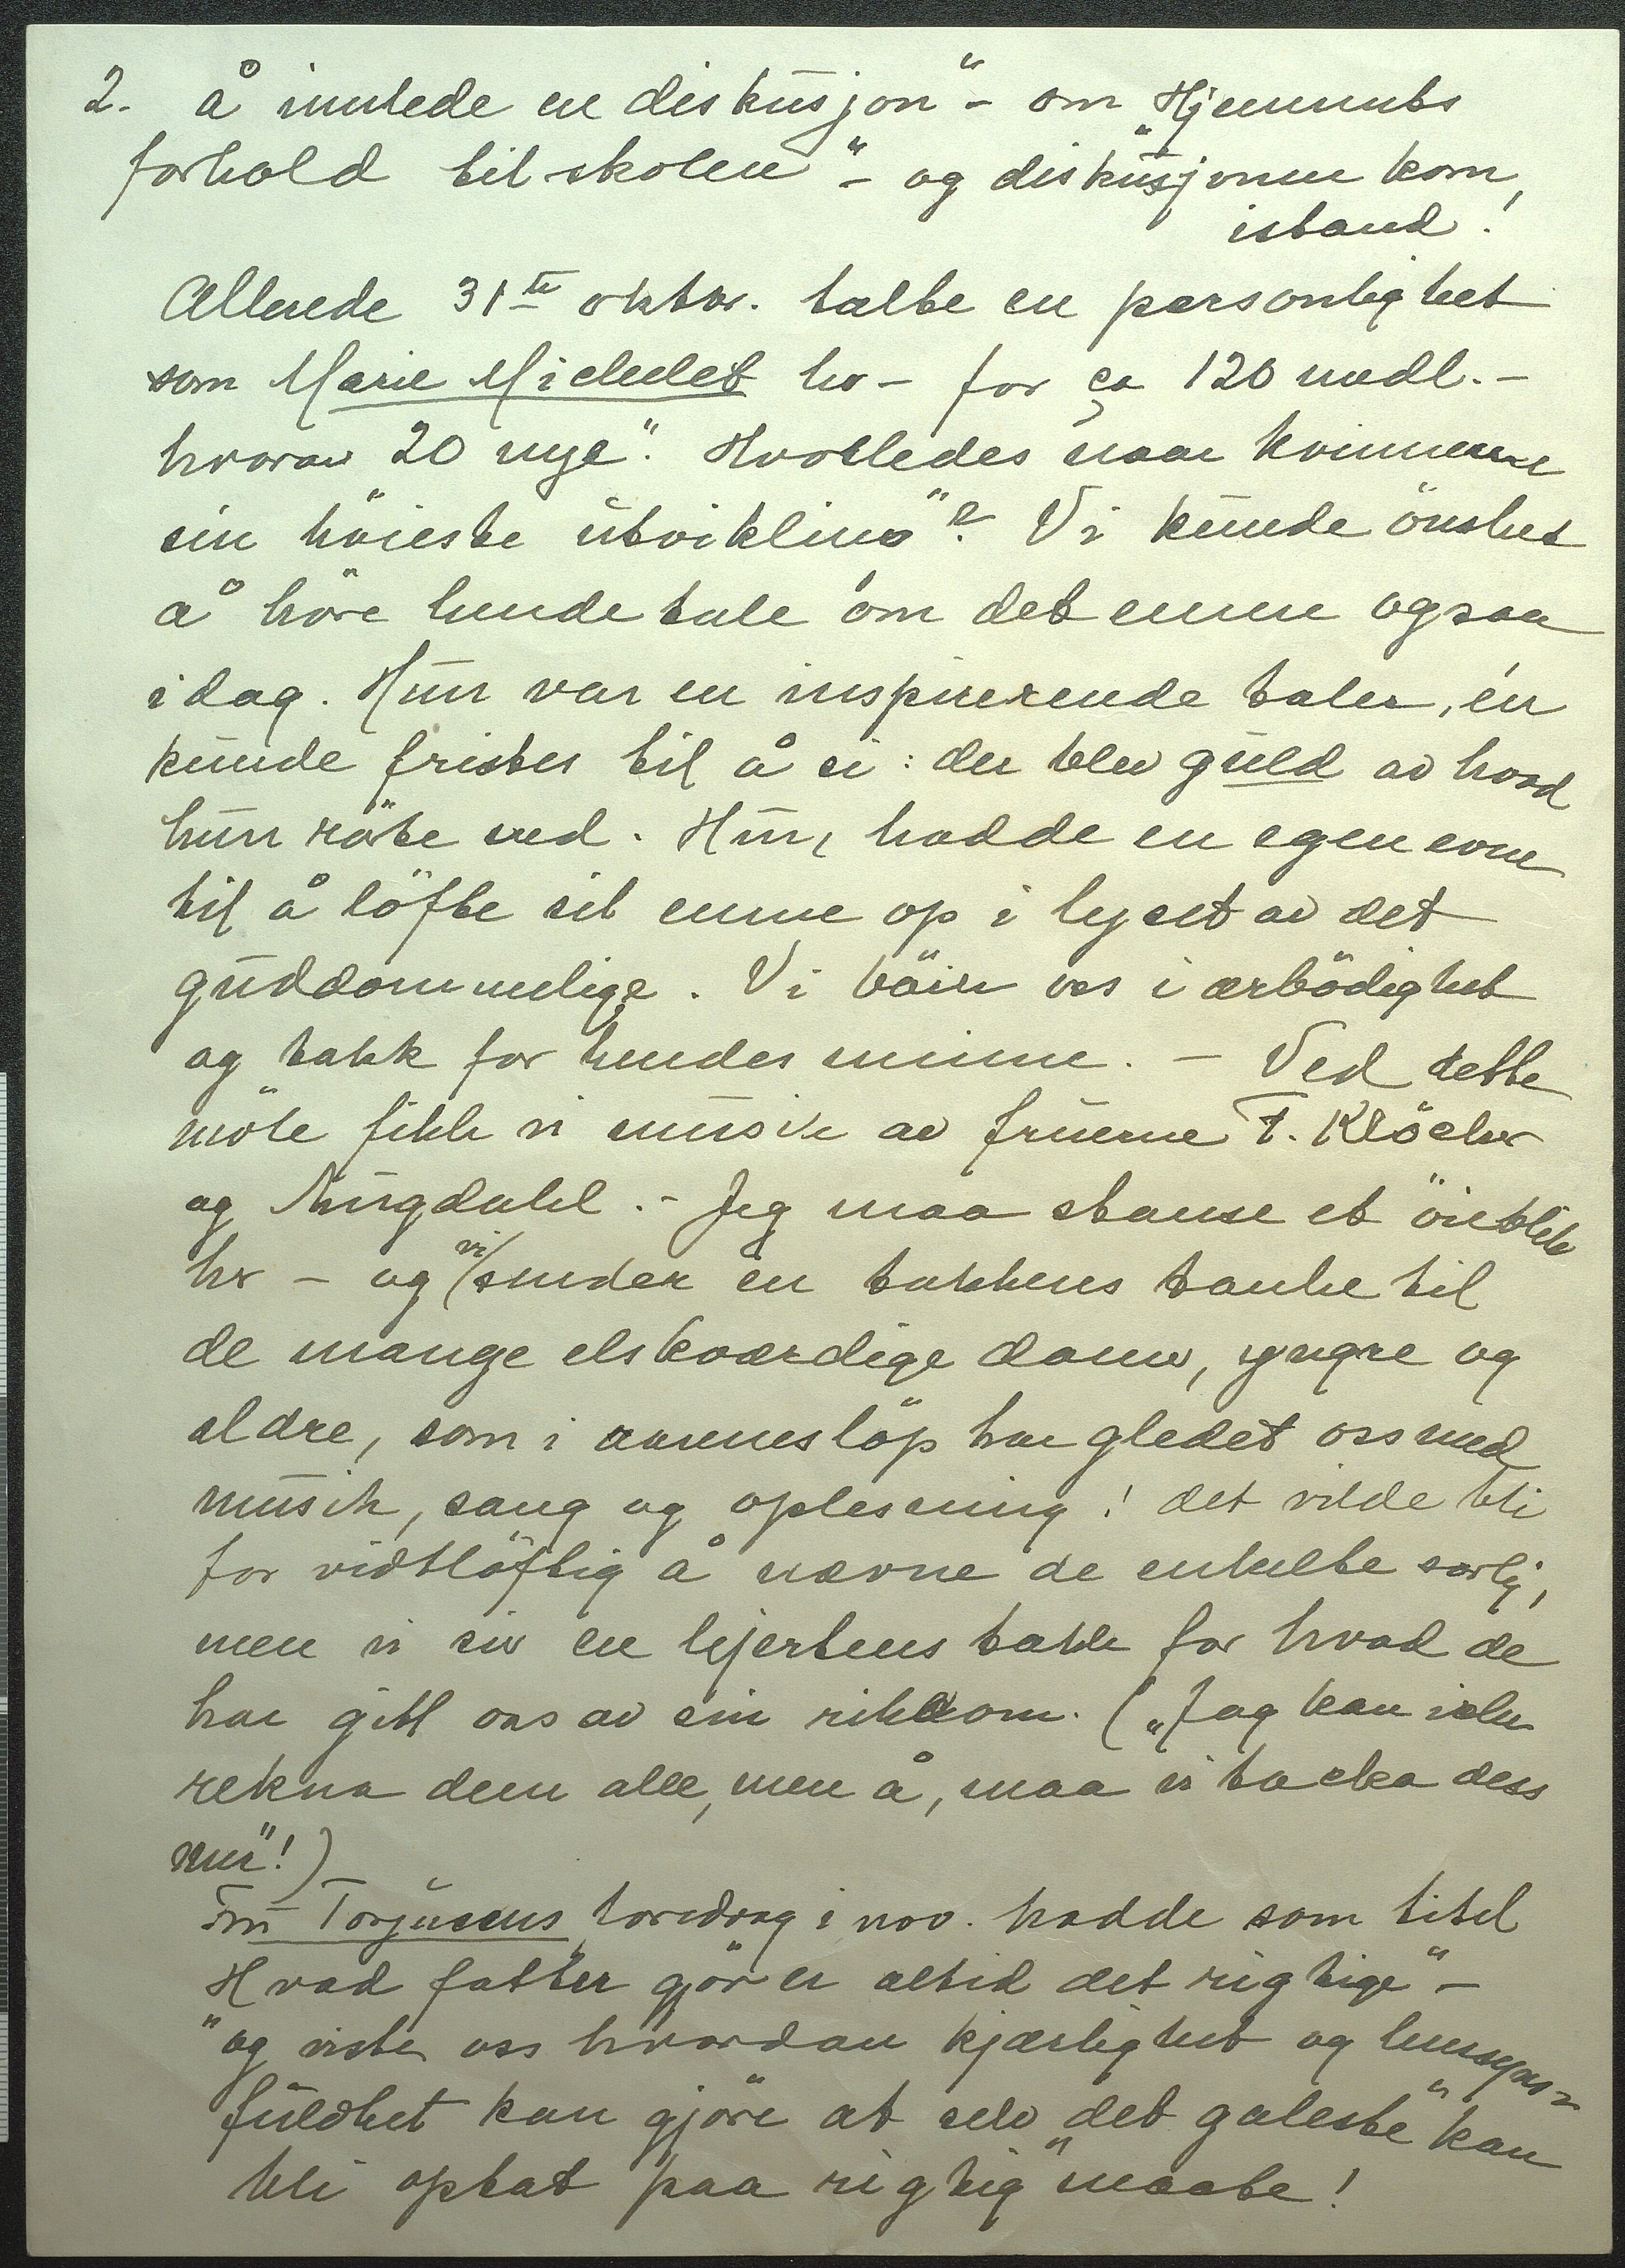 2. å innlede en diskusjon" - om „Hjemmets
forhold til skolen" - og diskusjonen kom
istand!
Allerede 31te oktbr. talte en personlighet
som Marie Michelet her - for ca 120 medl. -
hvorav 20 nye". Hvorledes naar kvinnerne
sin höieste utvikling"? Vi kunde önsket
å höre hende tale om det emne ogsaa
idag. Hun var en inspirerende taler, én
kunde fristes til å si: der blev guld av hvad
hun rörte ved. Hun hadde en egen evne
til å löfte sit emne op i lyset av det
guddommelige. Vi böier oss i ærbödighet
og takk for hendes minne. - Ved dette
möte fikk vi musik av fruerne T. Klöcker
og Ningdahl. - Jeg maa stanse et öieblik
her - og vi sender en takkens tanke til
de mange elskværdige damer, yngre og
eldre, som i aarenes löp har gledet oss med
musik, sang og oplesning! det vilde bli
for vidtlöftig å nævne de enkelte særlig,
men vi sier en hjertens takk for hvad de
har gitt oss av sin rikdom. („Jag kan icke
rekna dem alle, men å, maa vi tacka dess
mer"!)
Fru Torjusens foredrag i nov. hadde som titel
„Hvad fatter gjör er altid det rigtige" -
og viste oss hvordan kjærlighet og hensyns-
fuldhet kan gjöre at selv „det galeste" kan
bli optat paa „rigtig" maate!